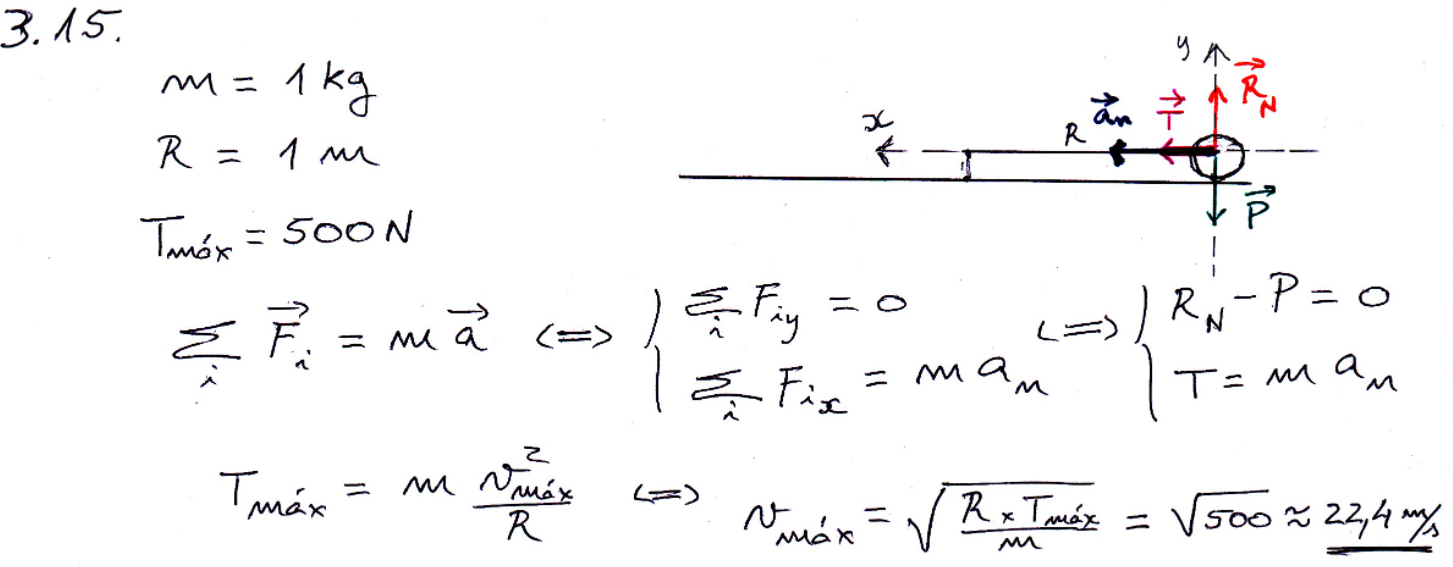 3.15.
m = 1 kg
R = 1 m
Tmáx = 500 N
y
R⃗N
a⃗n
T⃗
x
R
P⃗
∑i F⃗i = m a⃗ <=> { ∑i Fiy = 0 <=> { RN - P = 0
∑i Fix = m an T = m an
Tmáx = m v²máx/R <=> vmáx = √(R x Tmáx/m) = √500 ≈ 22,4 m/s